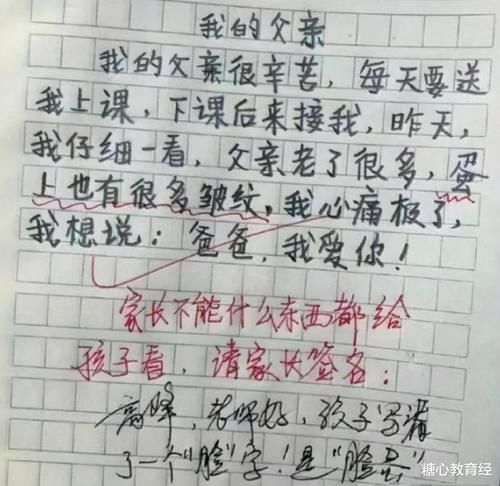 我的父亲
我的父亲很辛苦，每天要送
我上课，下课后来接我，昨天，
我仔细一看，父亲老了很多，蛋
上也有很多皱纹，我心痛极了，
我想说：爸爸，我爱你！
家长不能什么东西都给
孩子看，请家长签名：
高峰，老师好，孩子写错
了一个“脸”字！是“脸蛋”
糖心教育经